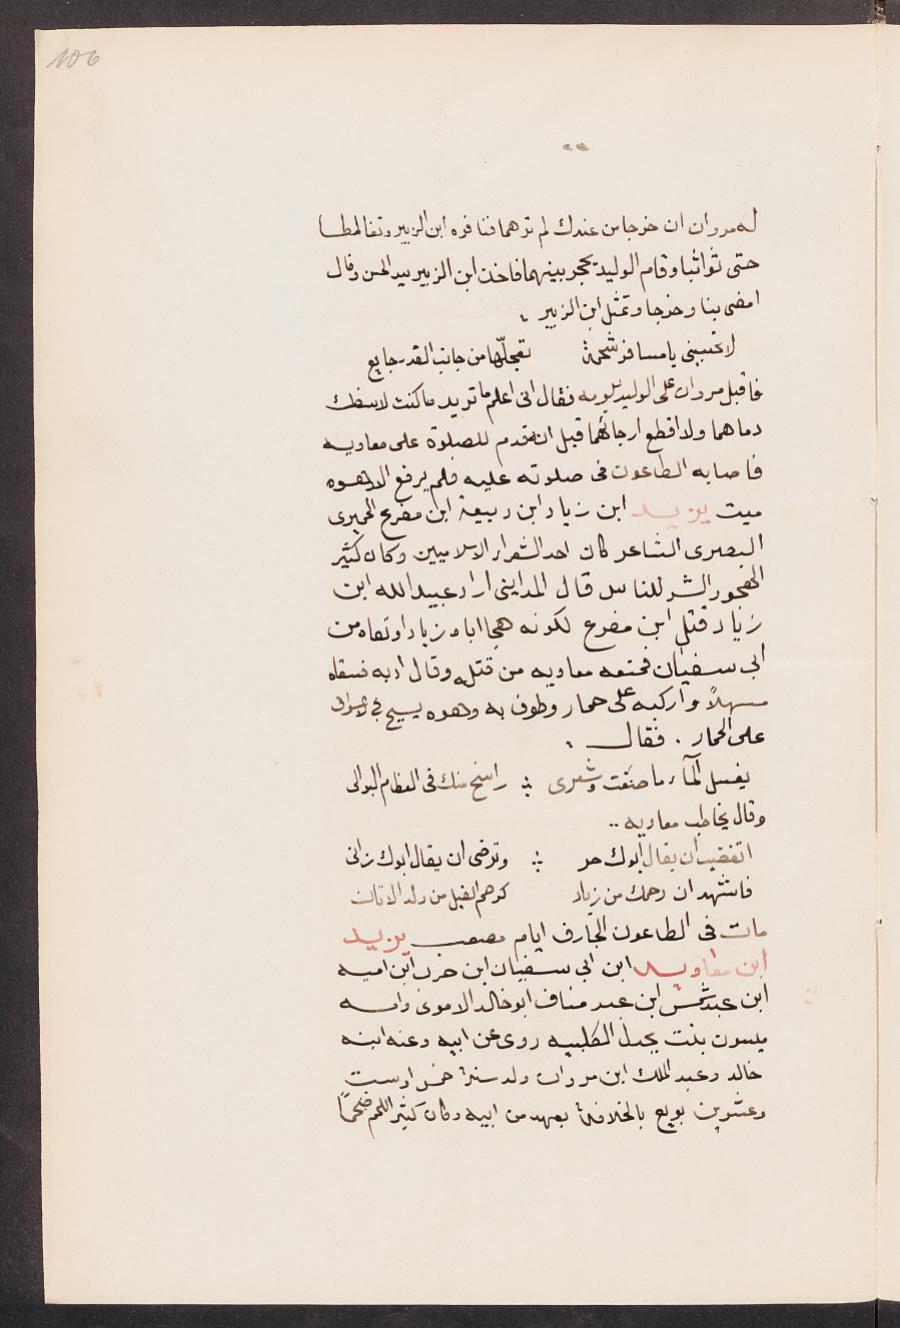 106
له مروان ان خرجا من عندك لم ترهما فنافره ابن الزبير وتغالطا
حتى تواثبا وقام الوليد يحجر بينهما فاخذ ابن الزبير بيد الحسن وقال
امضى بنا وخرجا وتمثل ابن الزبير
لا تحسبينى يا مسافر شحمة تعجلّها من جانب القدر جايع
فاقبل مروان على الوليد يلومه فقال انى اعلم ما تريد ما كنت لاسفك
دماهما ولا اقطع ارحامهما قبل ان تقدم للصلوة على معاويه
فاصابه الطاعون فى صلوته عليه فلم يرفع الا وهوه
ميت يزيد ابن زياد ابن ربيعة ابن مفرح الحميرى
البصرى الشاعر كان احد الشعراء الاسلاميين وكان كثير
الهجو والشر للناس قال المداينى اراد عبيد الله ابن
زياد قتل ابن مفرح لكونه هجا اباه زيادا ونفاه من
ابى سفيان فمنعه معاويه من قتله وقال ادبه فسقاه
مسهلاً واركبه على حمار وطوف به وهوه يسيح فى الاسواق
على الحمار . فقال
يغسل المآء ما صنعت وشعرى راسخ منك فى العظام البوالى
وقال يخاطب معاويه ..
اتغضب ان يقال ابوك حر وترضى ان يقال ابوك زانى
فاشهد ان رحمك من زياد كرحم الفيل من ولد الاتان
مات فى الطاعون الجارف ايام مصعب يزيد
ابن معاويه ابن ابى سفيان ابن حرب ابن اميه
ابن عبد شمس ابن عبد مناف ابو خالد الاموى وامه
ميسون بنت بجدل الكلبيه روى عن ابيه وعنه ابنه
خالد وعبد الملك ابن مروان ولد سنة خمس اوست
وعشرين بويع بالخلافة بعهد من ابيه وكان كثير اللحم ضخمًا